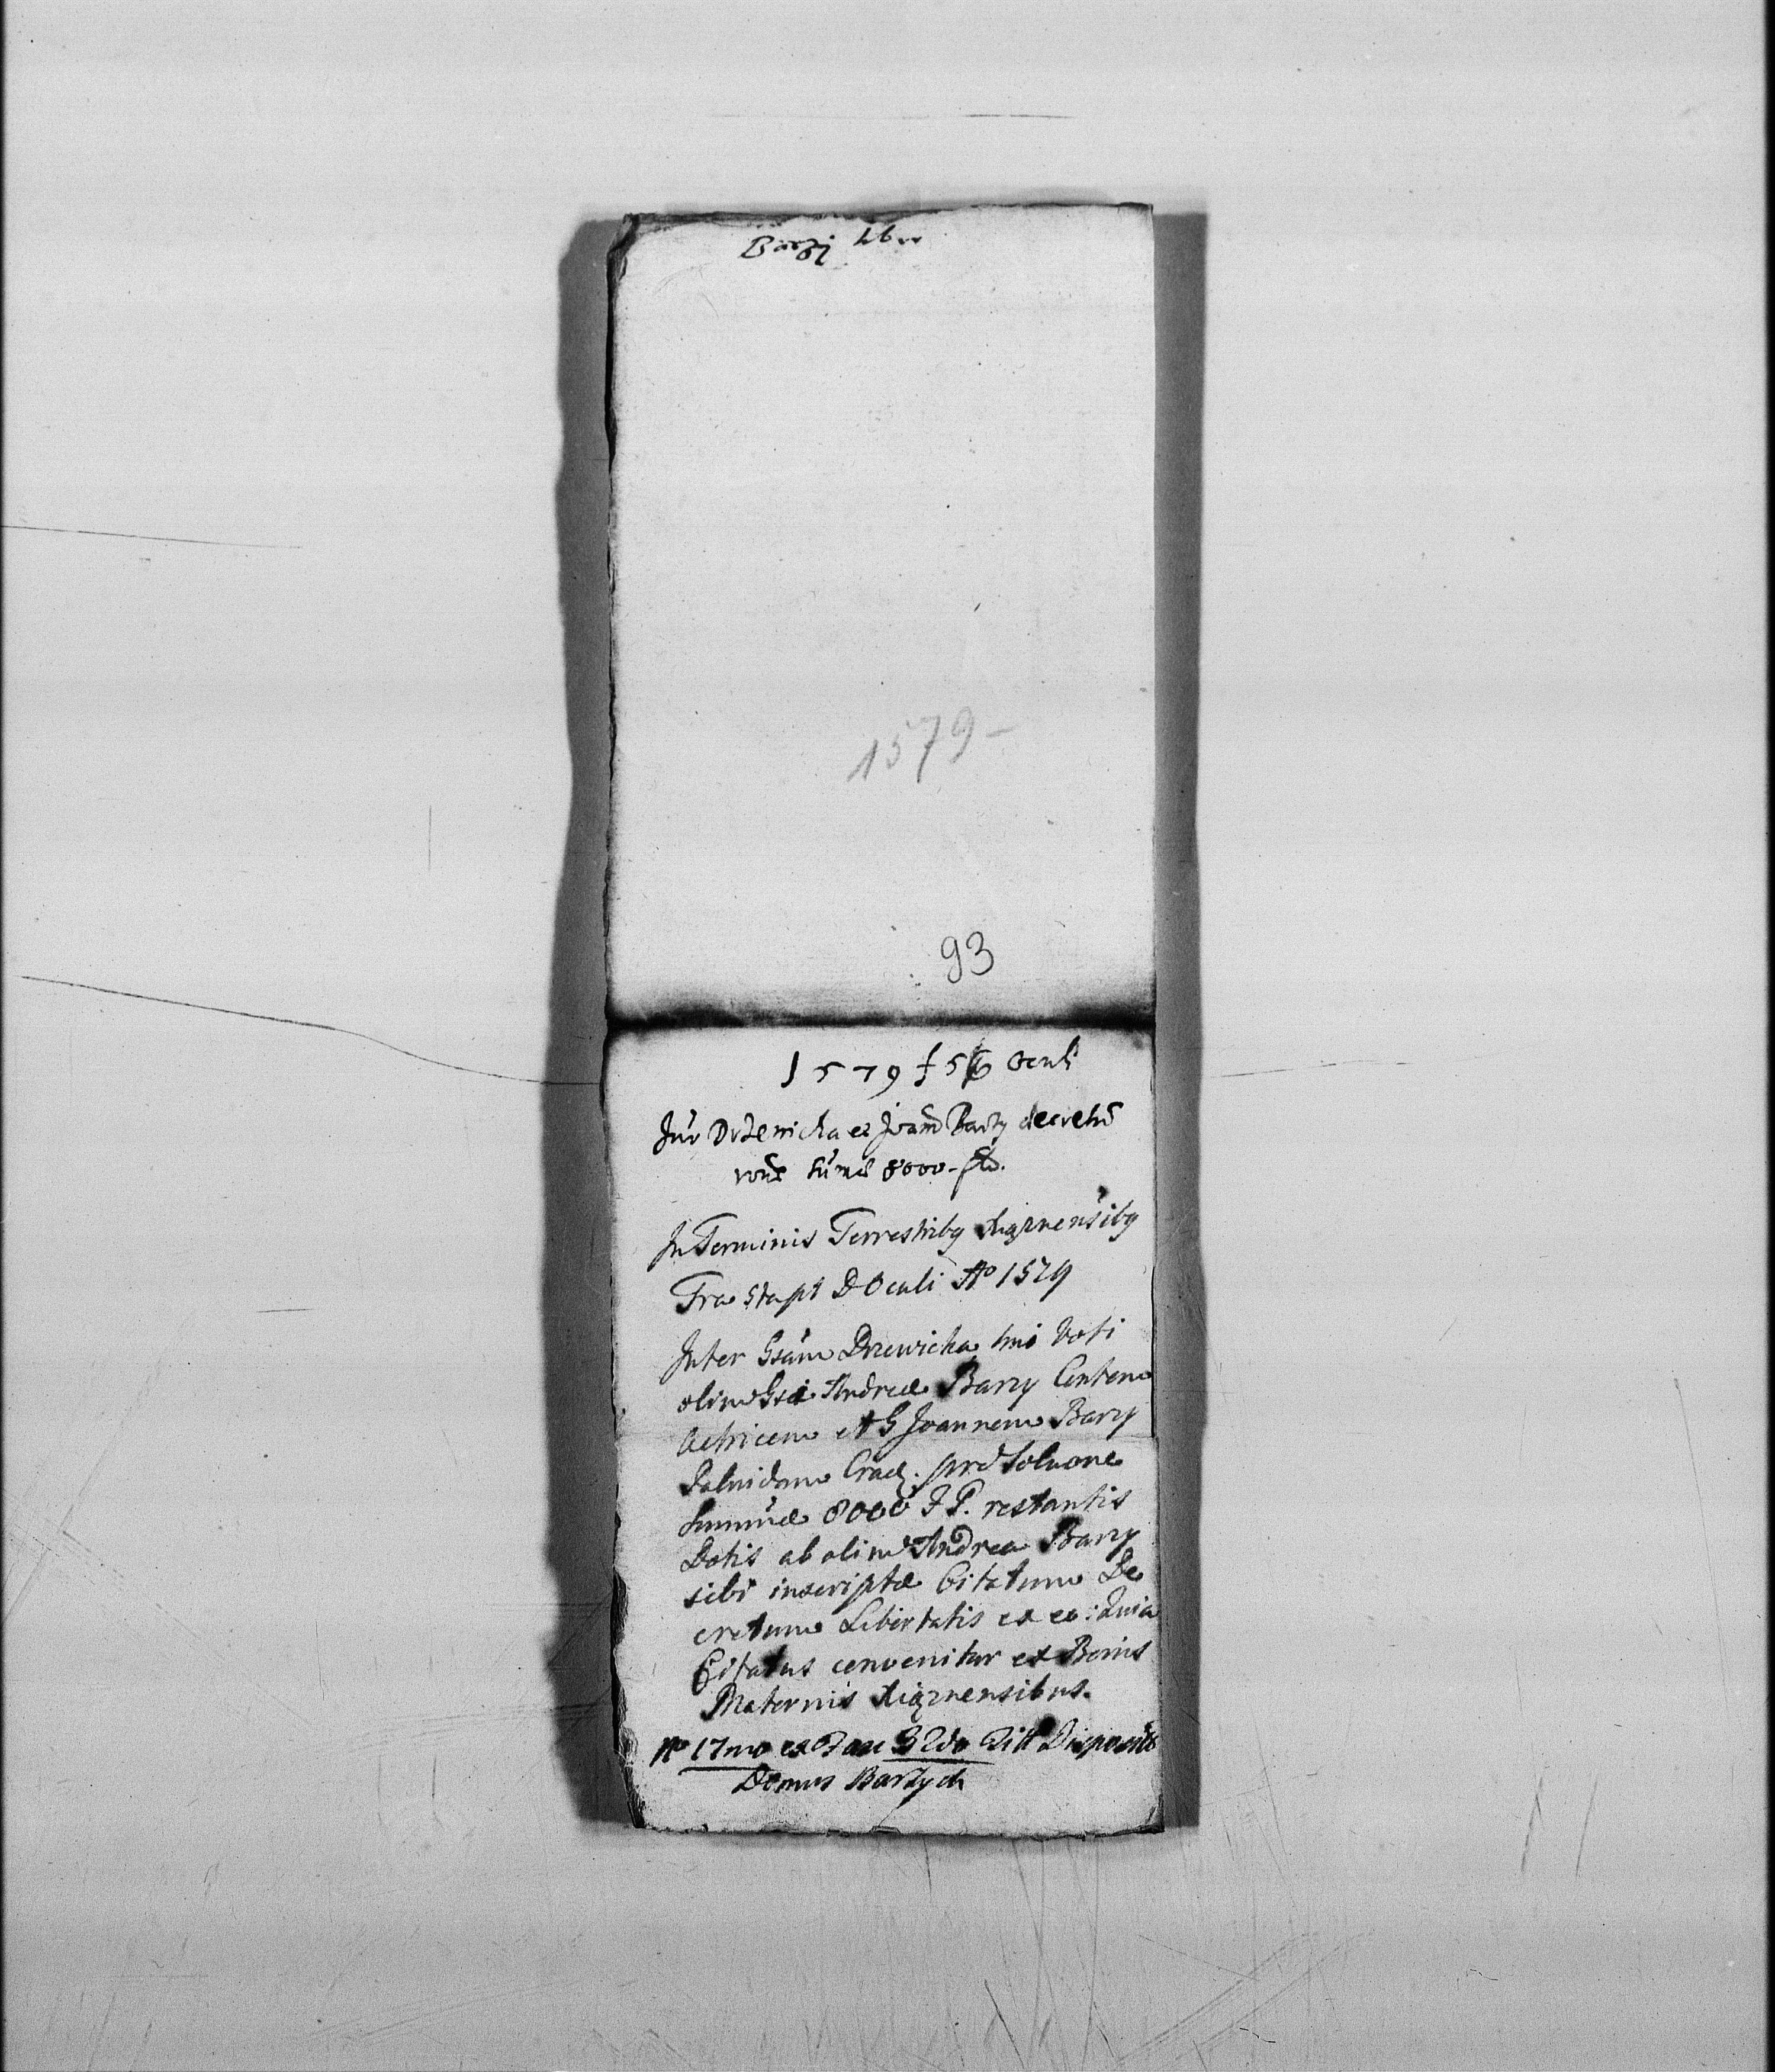 Barzi
1579-
93
1579 f 56 Oculi
Int Drzewicka et Joan Barzy decretu
rone sume 8000 - flo.
In Terminis Terrestribg Xiąznensibg
Fra 5ta pt D Oculi Ao 1579
Inter Gsam Drzewicka 1mi Voti
olim Gsi Andreæ Barzy Conten
Actricem et G Joannem Barzy
Palnidam Crac. pro Solvone
Summæ 8000 F P. restantis
Dotis ab olim Andrea Barzy
sibi inscriptæ Citatum De
cretum Libertatis ex eo: Quia
Citatus convenitur ex Bonis
Maternis Xiąznensibus.
No 17mo ex Fasc 32do Titt
Domus Barzych